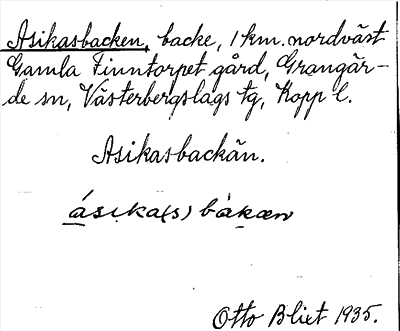 Asikasbacken, backe, 1 km. nordväst
Gamla Finntorpet gård, Grangär-
de sn, Västerbergslags tg, Kopp l.
Asikasbackän.
ásika(s) bàkæn
Otto Blixt 1935.